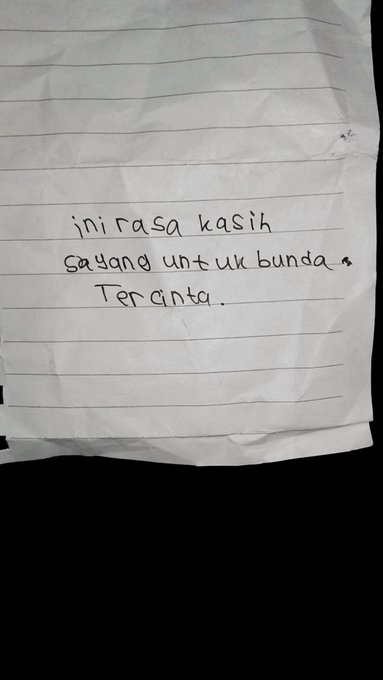 ini rasa kasih
sayang untuk bunda
Tercinta.